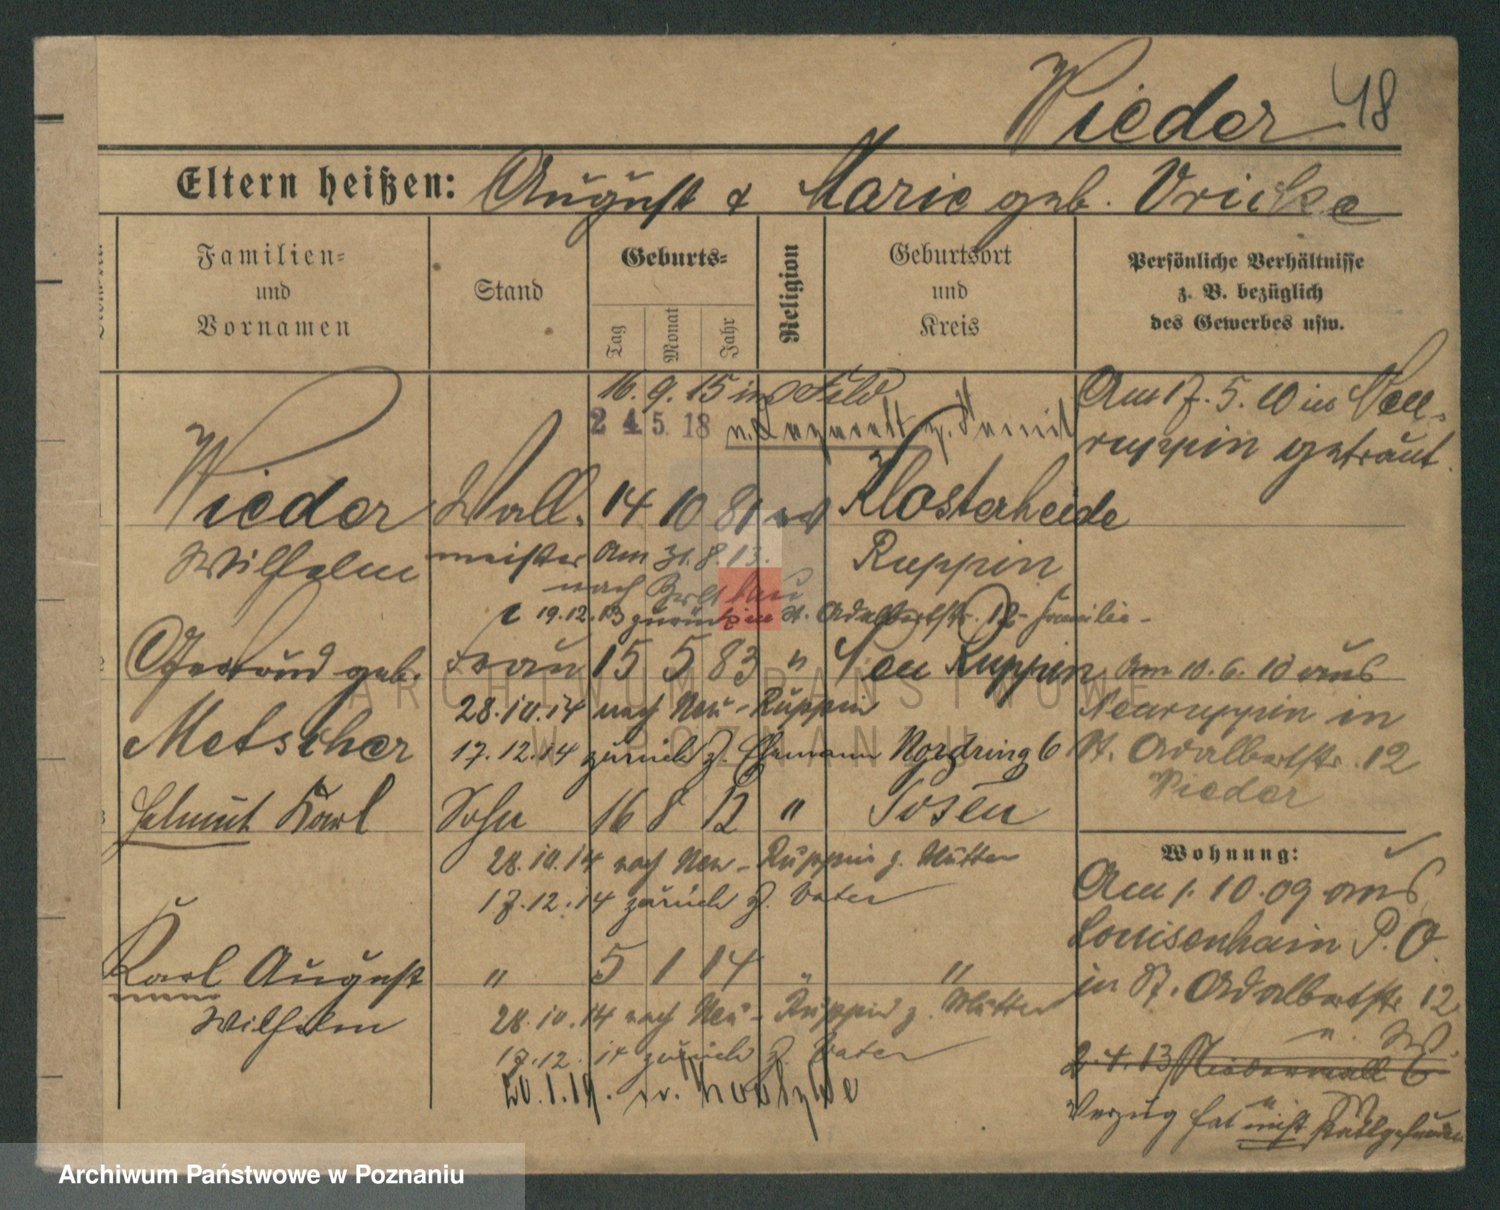 Wieder 48
Eltern heißen: August & Marie geb. Vricke
Familien- und Vornamen
Stand
Geburts-
Tag
Monat
Jahr
Religion
Geburtsort und Kreis
Persönliche Verhältnisse
z. B. bezüglich
des Gewerbes usw.
16. 9. 15 ins Feld
24 5. 18
Am 17. 5. 10 in Neu-
ruppin getraut.
Wieder Wall- 14 10 81 ev Klosterheide
Wilhelm meister Am 31. 8. 13. Ruppin
nach
19.12.13 zurück in St. Adalbertstr. 12 - Familie -
Gertrud geb. Frau 15 5 83 " Neu Ruppin
Am 10. 6. 10 aus
28.10.14 nach Neu-Ruppin
Neuruppin in
Metscher 17.12.14 zurück z. Ehemann Nordring 6
St. Adalbertstr. 12
Wieder
Helmut Karl Sohn 16 8 12 " Posen
28.10.14 nach Neu-Ruppin z. Mutter
17.12.14 zurück z. Vater
Wohnung:
Am 1. 10. 09 aus
Louisenhain P. O.
in St. Adalbertstr. 12
Karl August " 5 1 14 "
Wilhelm 28.10.14 nach Neu-Ruppin z. Mutter
17.12.14 zurück z. Vater
20.1.19.
2. 4. 13 Niederwall 6
Verzug hat nicht stattgefunden
ARCHIWUM PAŃSTWOWE
W POZNANIU
Archiwum Państwowe w Poznaniu